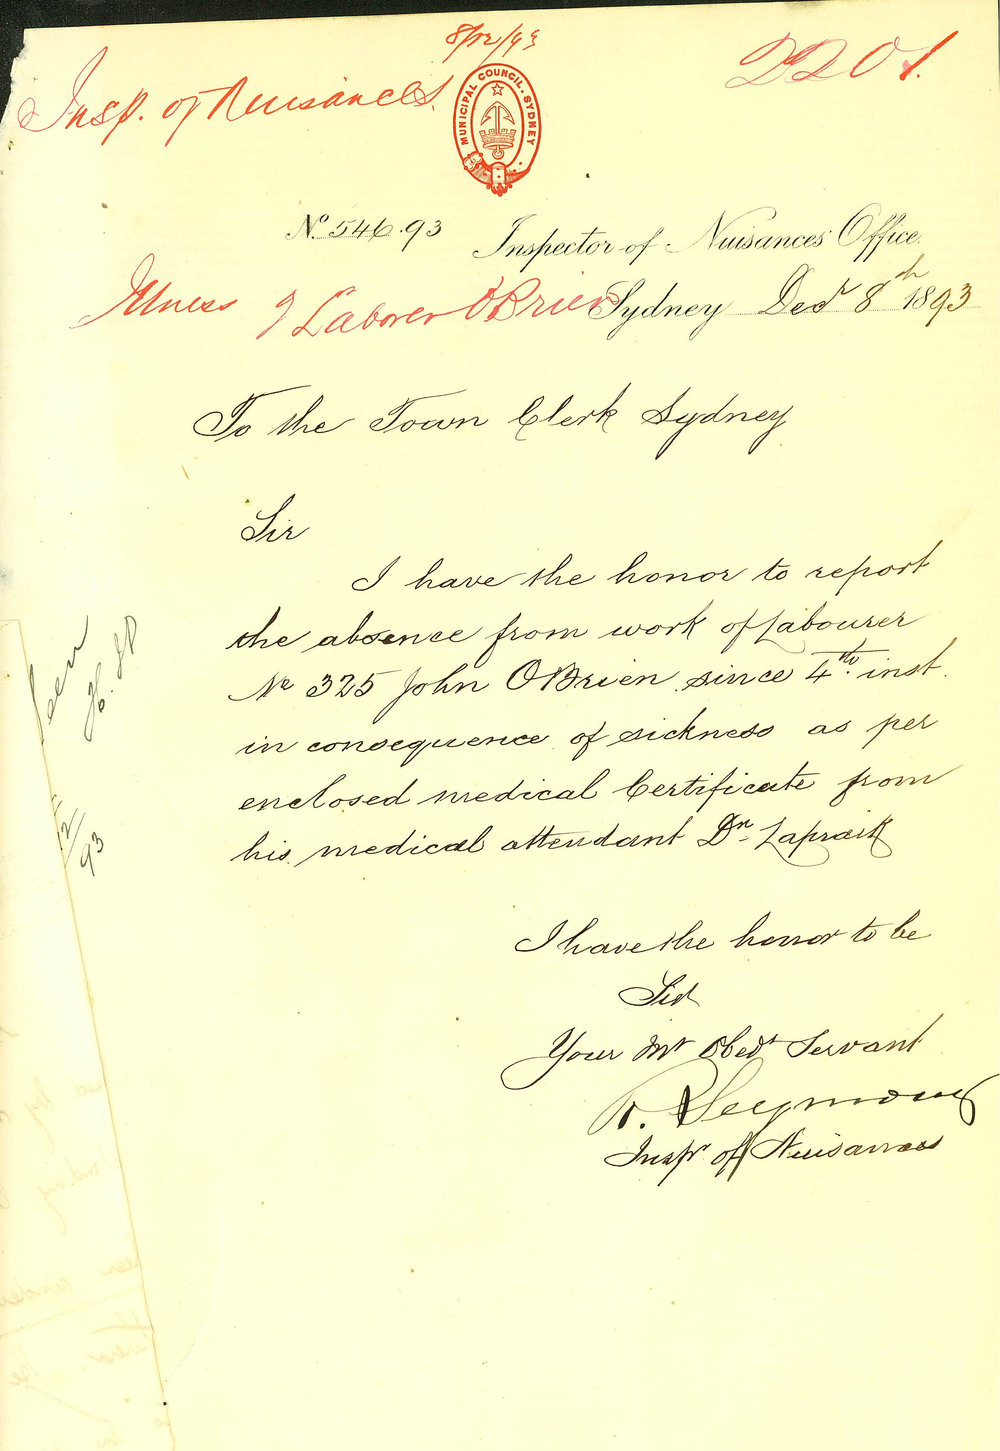 8/12/93
2201.
Insp. of Nuisances.
MUNICIPAL COUNCIL. SYDNEY
No. 546.93 Inspector of Nuisances Office.
Illness of Laborer O'Brien Sydney Decr 8th 1893
To the Town Clerk Sydney
Sir
I have the honor to report
the absence from work of Labourer
No 325 John O'Brien since 4th. inst.
in consequence of sickness as per
enclosed medical Certificate from
his medical attendant Dr. Lapraik
I have the honor to be
Sir
Your Mt Obedt Servant
R. Seymour
Inspr of Nuisances
Seen
12/93